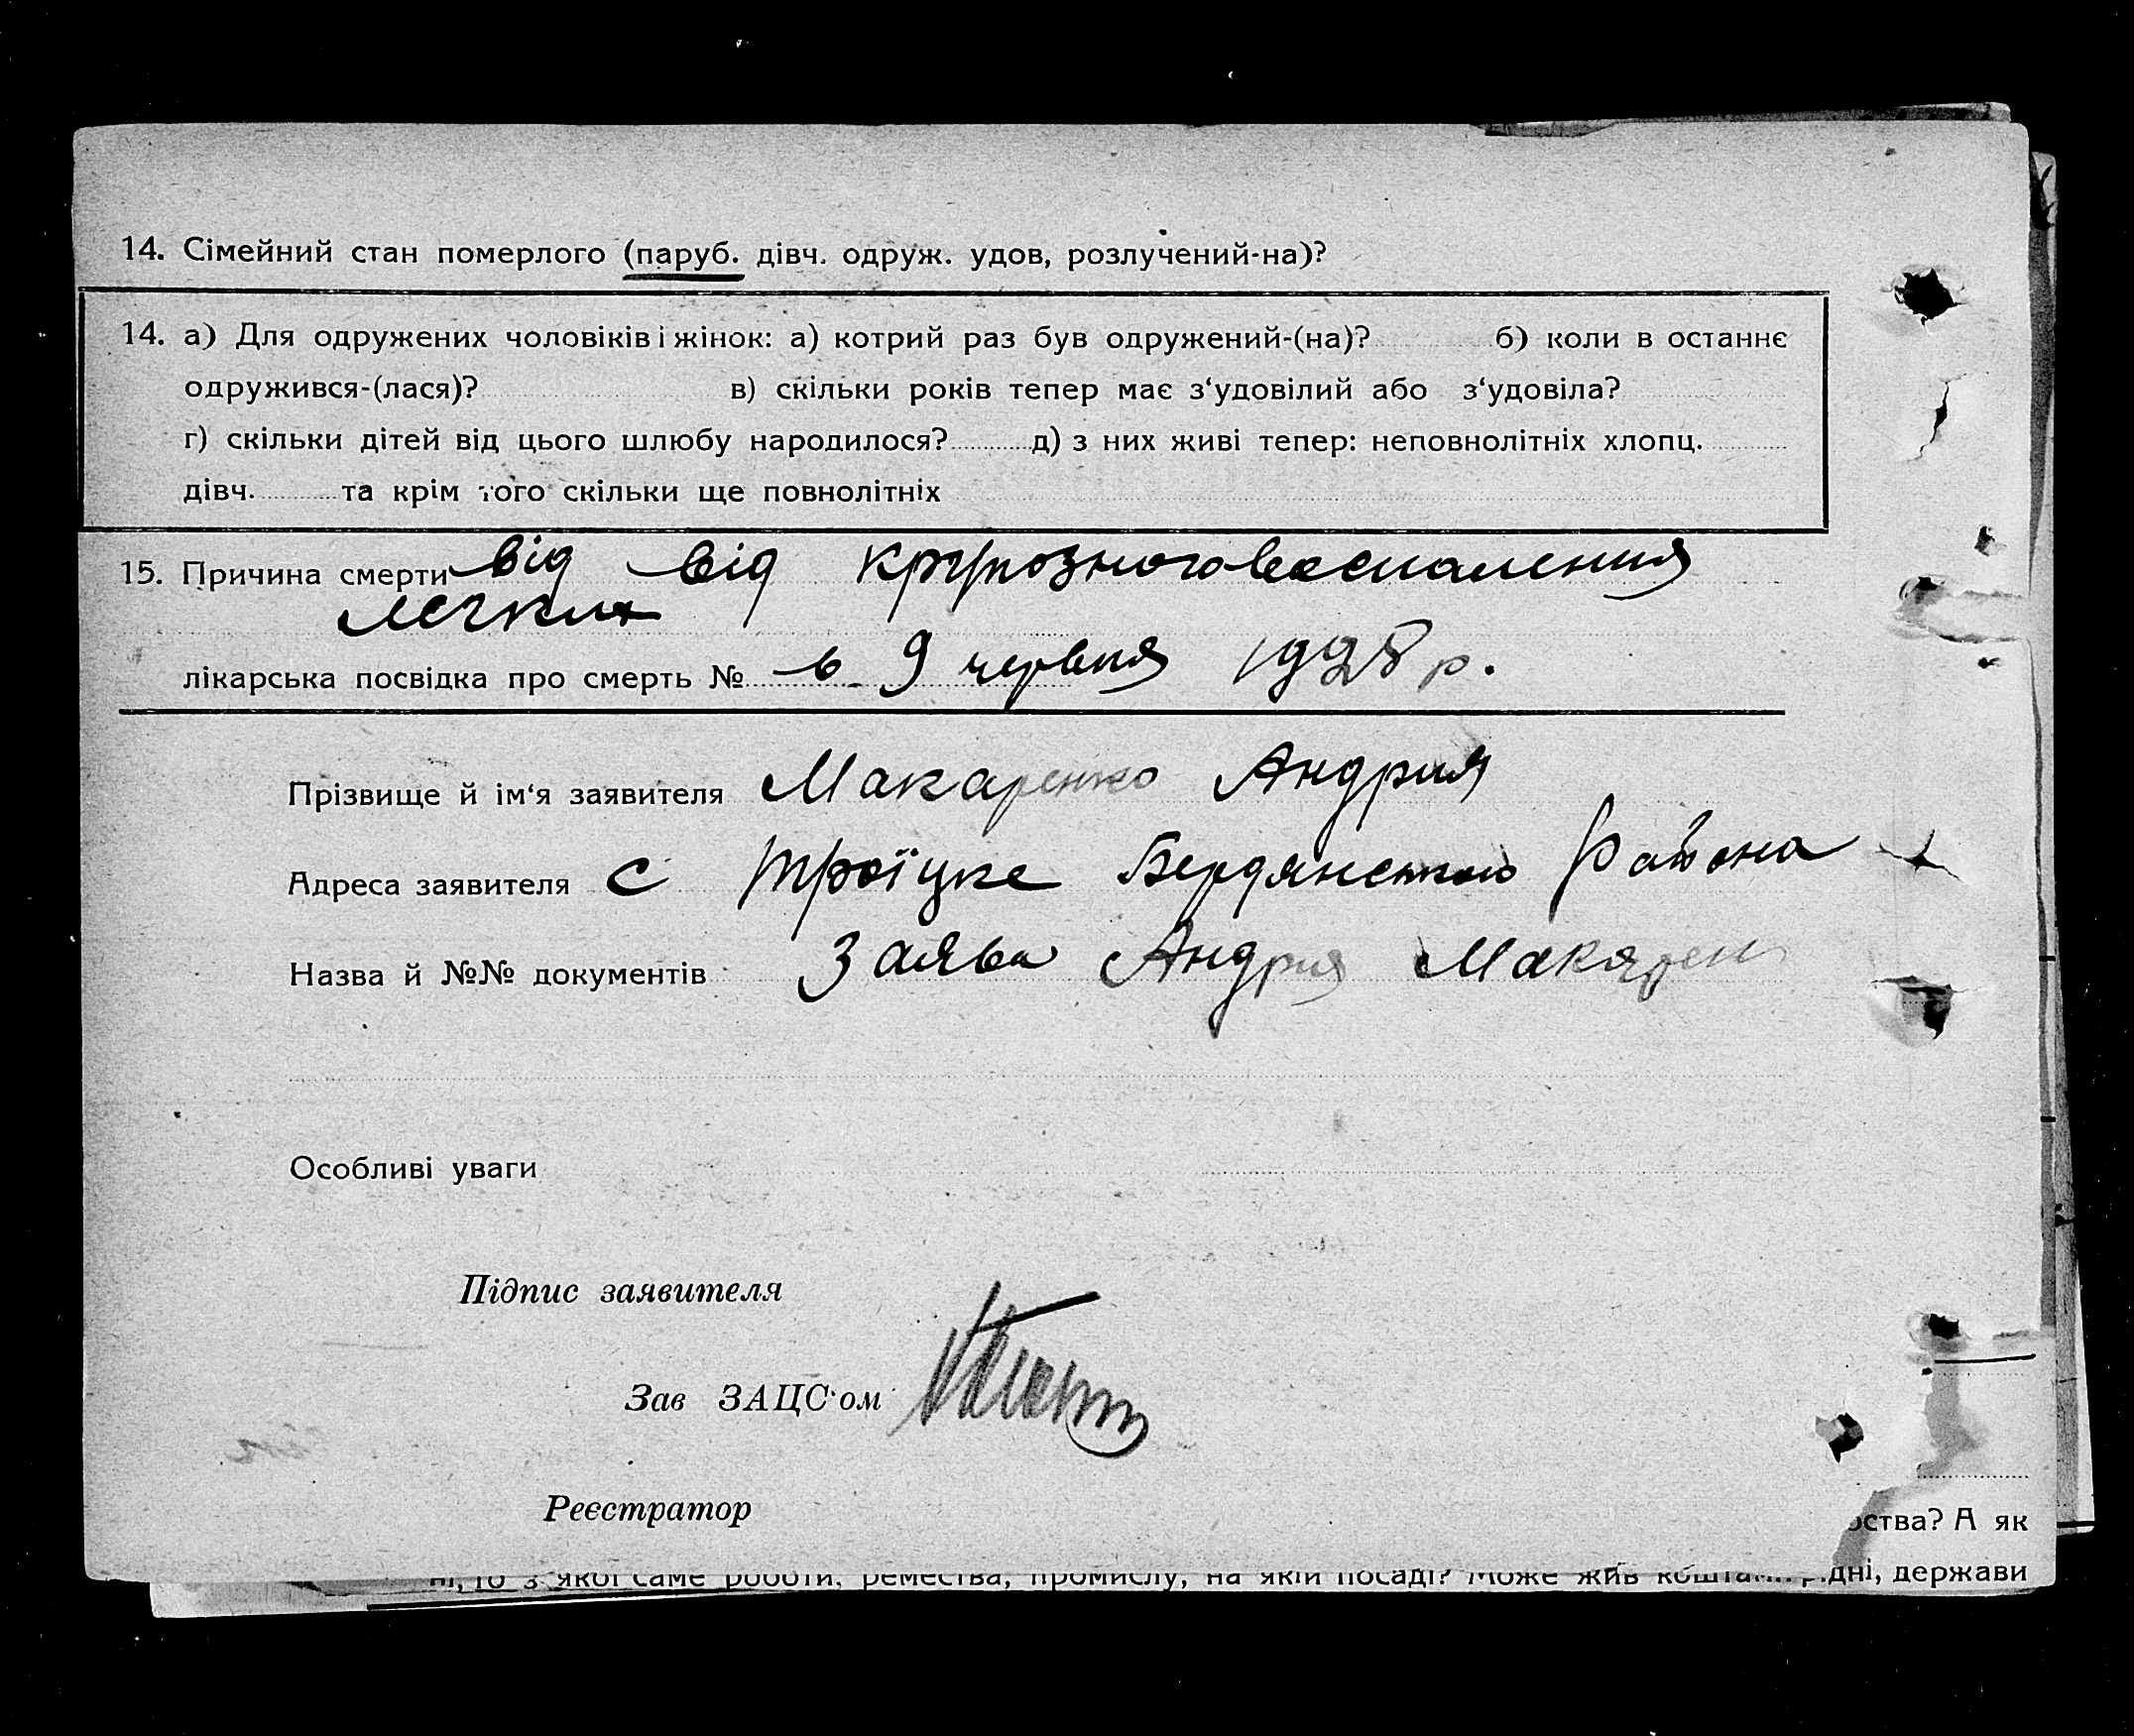 14. Сімейний стан померлого (паруб. дівч. одруж. удов, розлучений-на)?
14. а) Для одружених чоловіків і жінок: а) котрий раз був одружений-(на)? б) коли в останнє
одружився-(лася)? в) скільки років тепер має з‘удовілий або з‘удовіла?
г) скільки дітей від цього шлюбу народилося? д) з них живі тепер: неповнолітніх хлопц.
дівч. та крім того скільки ще повнолітніх
15. Причина смерти від від крупозного воспаления
легких
лікарська посвідка про смерть № в 9 червня 1928 р.
Прізвище й ім‘я заявителя Макаренко Андрия
Адреса заявителя с Троїцке Бердянського Района
Назва й №№ документів Заява Андрия Макарен
Особливі уваги
Підпис заявителя
Зав ЗАЦС‘ом
Реєстратор
рства? А як
ні, то з якої саме роботи, ремества, промислу, на якій посаді? Може жив кошта дні, держави